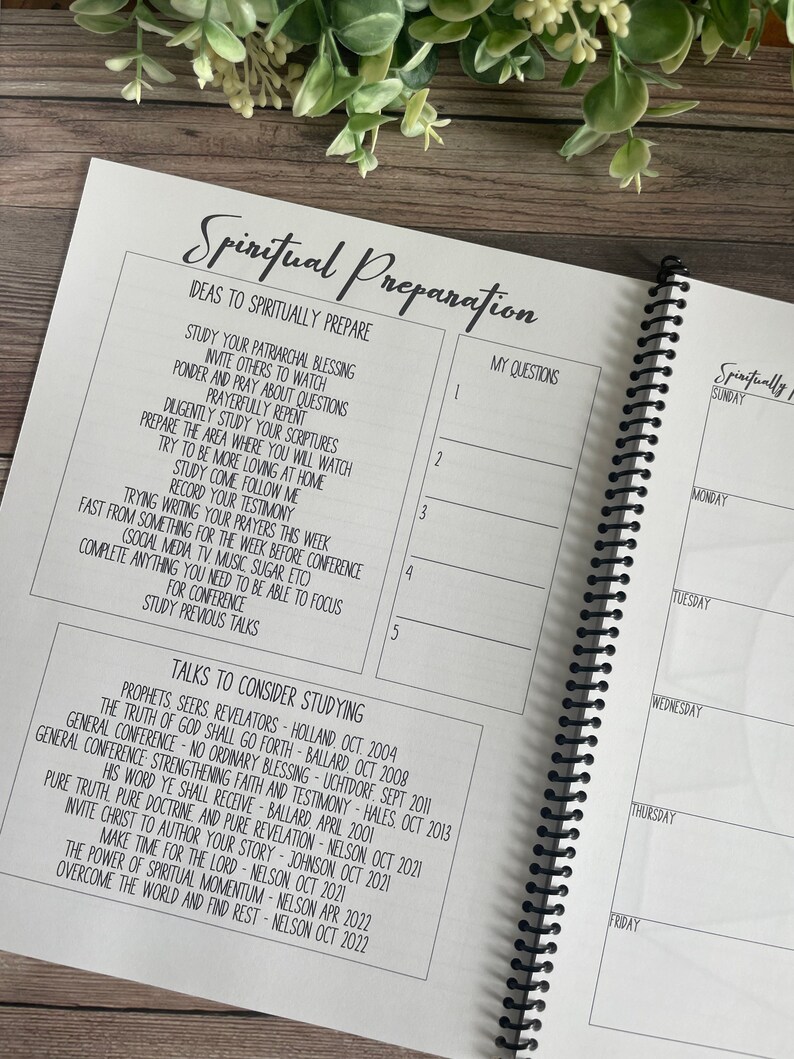 Spiritual Preparation
IDEAS TO SPIRITUALLY PREPARE
STUDY YOUR PATRIARCHAL BLESSING
INVITE OTHERS TO WATCH
PONDER AND PRAY ABOUT QUESTIONS
PRAYERFULLY REPENT
DILIGENTLY STUDY YOUR SCRIPTURES
PREPARE THE AREA WHERE YOU WILL WATCH
TRY TO BE MORE LOVING AT HOME
STUDY COME FOLLOW ME
RECORD YOUR TESTIMONY
TRYING WRITING YOUR PRAYERS THIS WEEK
FAST FROM SOMETHING FOR THE WEEK BEFORE CONFERENCE
(SOCIAL MEDIA, TV, MUSIC, SUGAR, ETC)
COMPLETE ANYTHING YOU NEED TO BE ABLE TO FOCUS
FOR CONFERENCE
STUDY PREVIOUS TALKS
MY QUESTIONS
1
2
3
4
5
TALKS TO CONSIDER STUDYING
PROPHETS, SEERS, REVELATORS - HOLLAND, OCT. 2004
THE TRUTH OF GOD SHALL GO FORTH - BALLARD, OCT 2008
GENERAL CONFERENCE - NO ORDINARY BLESSING - UCHTDORF, SEPT 2011
GENERAL CONFERENCE: STRENGTHENING FAITH AND TESTIMONY - HALES, OCT 2013
HIS WORD YE SHALL RECEIVE - BALLARD, APRIL 2001
PURE TRUTH, PURE DOCTRINE, AND PURE REVELATION - NELSON, OCT 2021
INVITE CHRIST TO AUTHOR YOUR STORY - JOHNSON, OCT 2021
MAKE TIME FOR THE LORD - NELSON, OCT 2021
THE POWER OF SPIRITUAL MOMENTUM - NELSON APR 2022
OVERCOME THE WORLD AND FIND REST - NELSON OCT 2022
Spiritually
SUNDAY
MONDAY
TUESDAY
WEDNESDAY
THURSDAY
FRIDAY